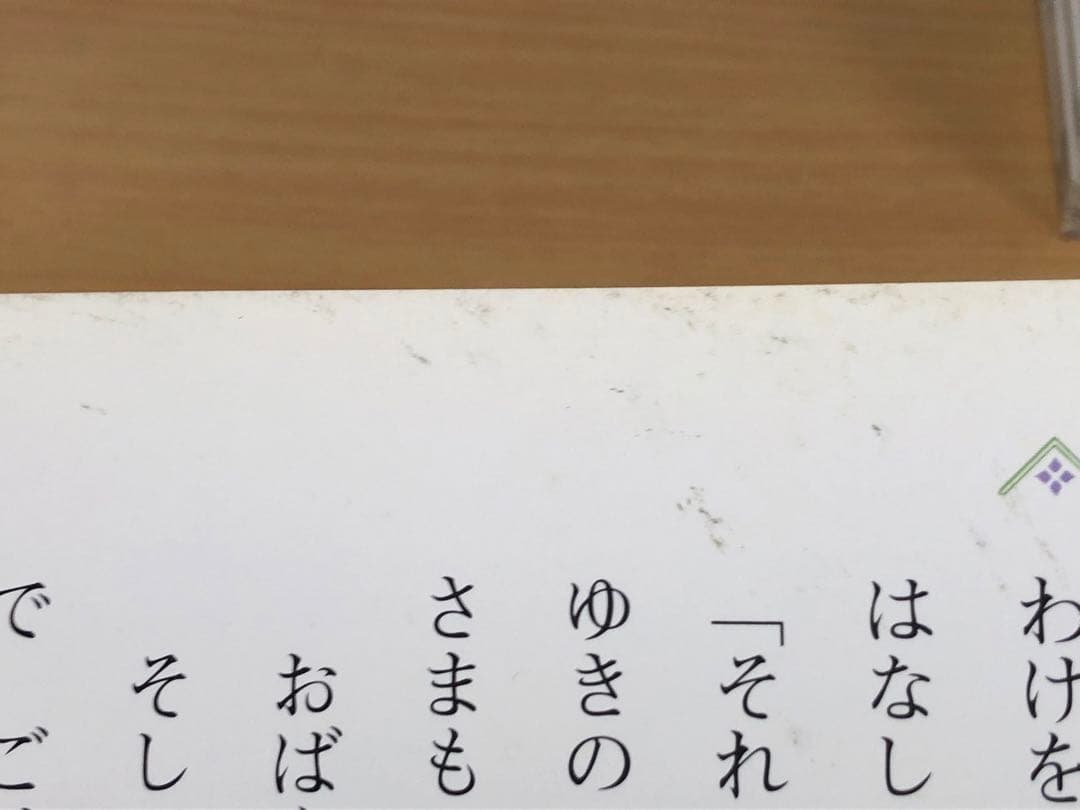 わけを
はなし
「それ
ゆきの
さまも
おば
そし
でご